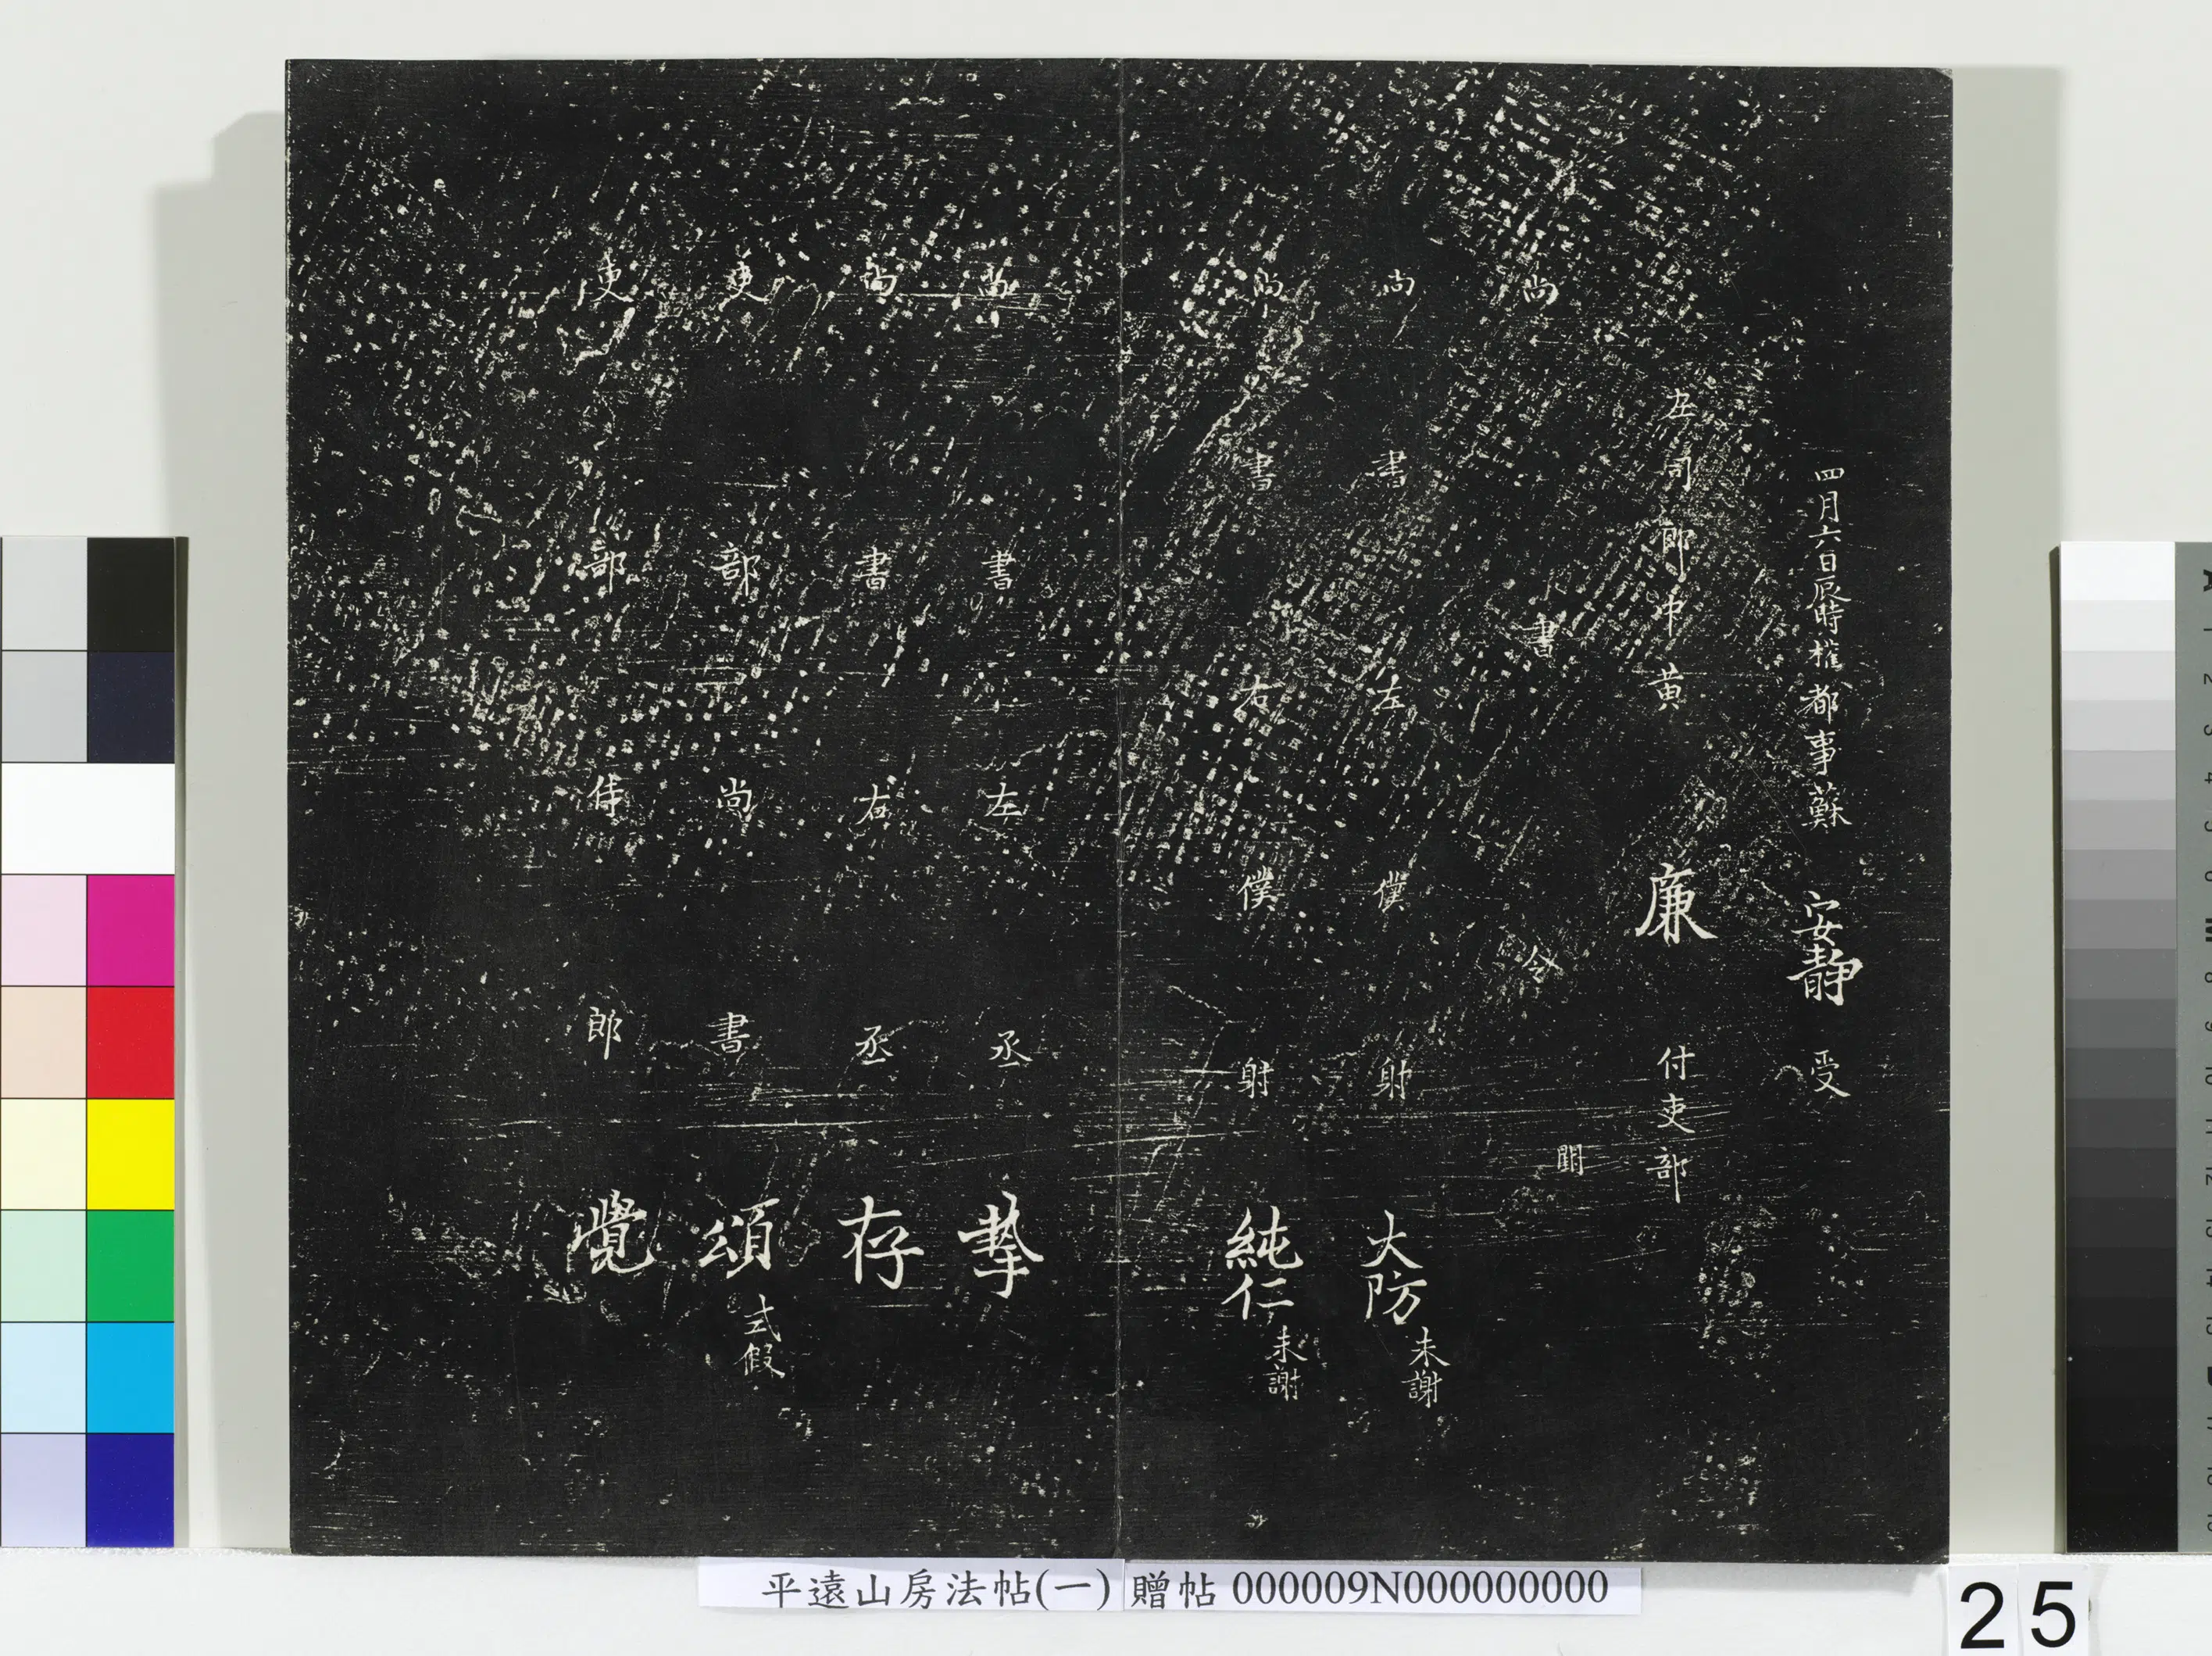 四月六日辰時權都事蘇 安靜 受
左司郎中黃 廉 付吏部
尚書令 闕
尚書左僕射 大防 未謝
尚書右僕射 純仁 未謝
尚書左丞 摯
尚書右丞 存
吏部尚書 頌 式假
吏部侍郎 覺
平遠山房法帖(一) 贈帖 000009N000000000
25